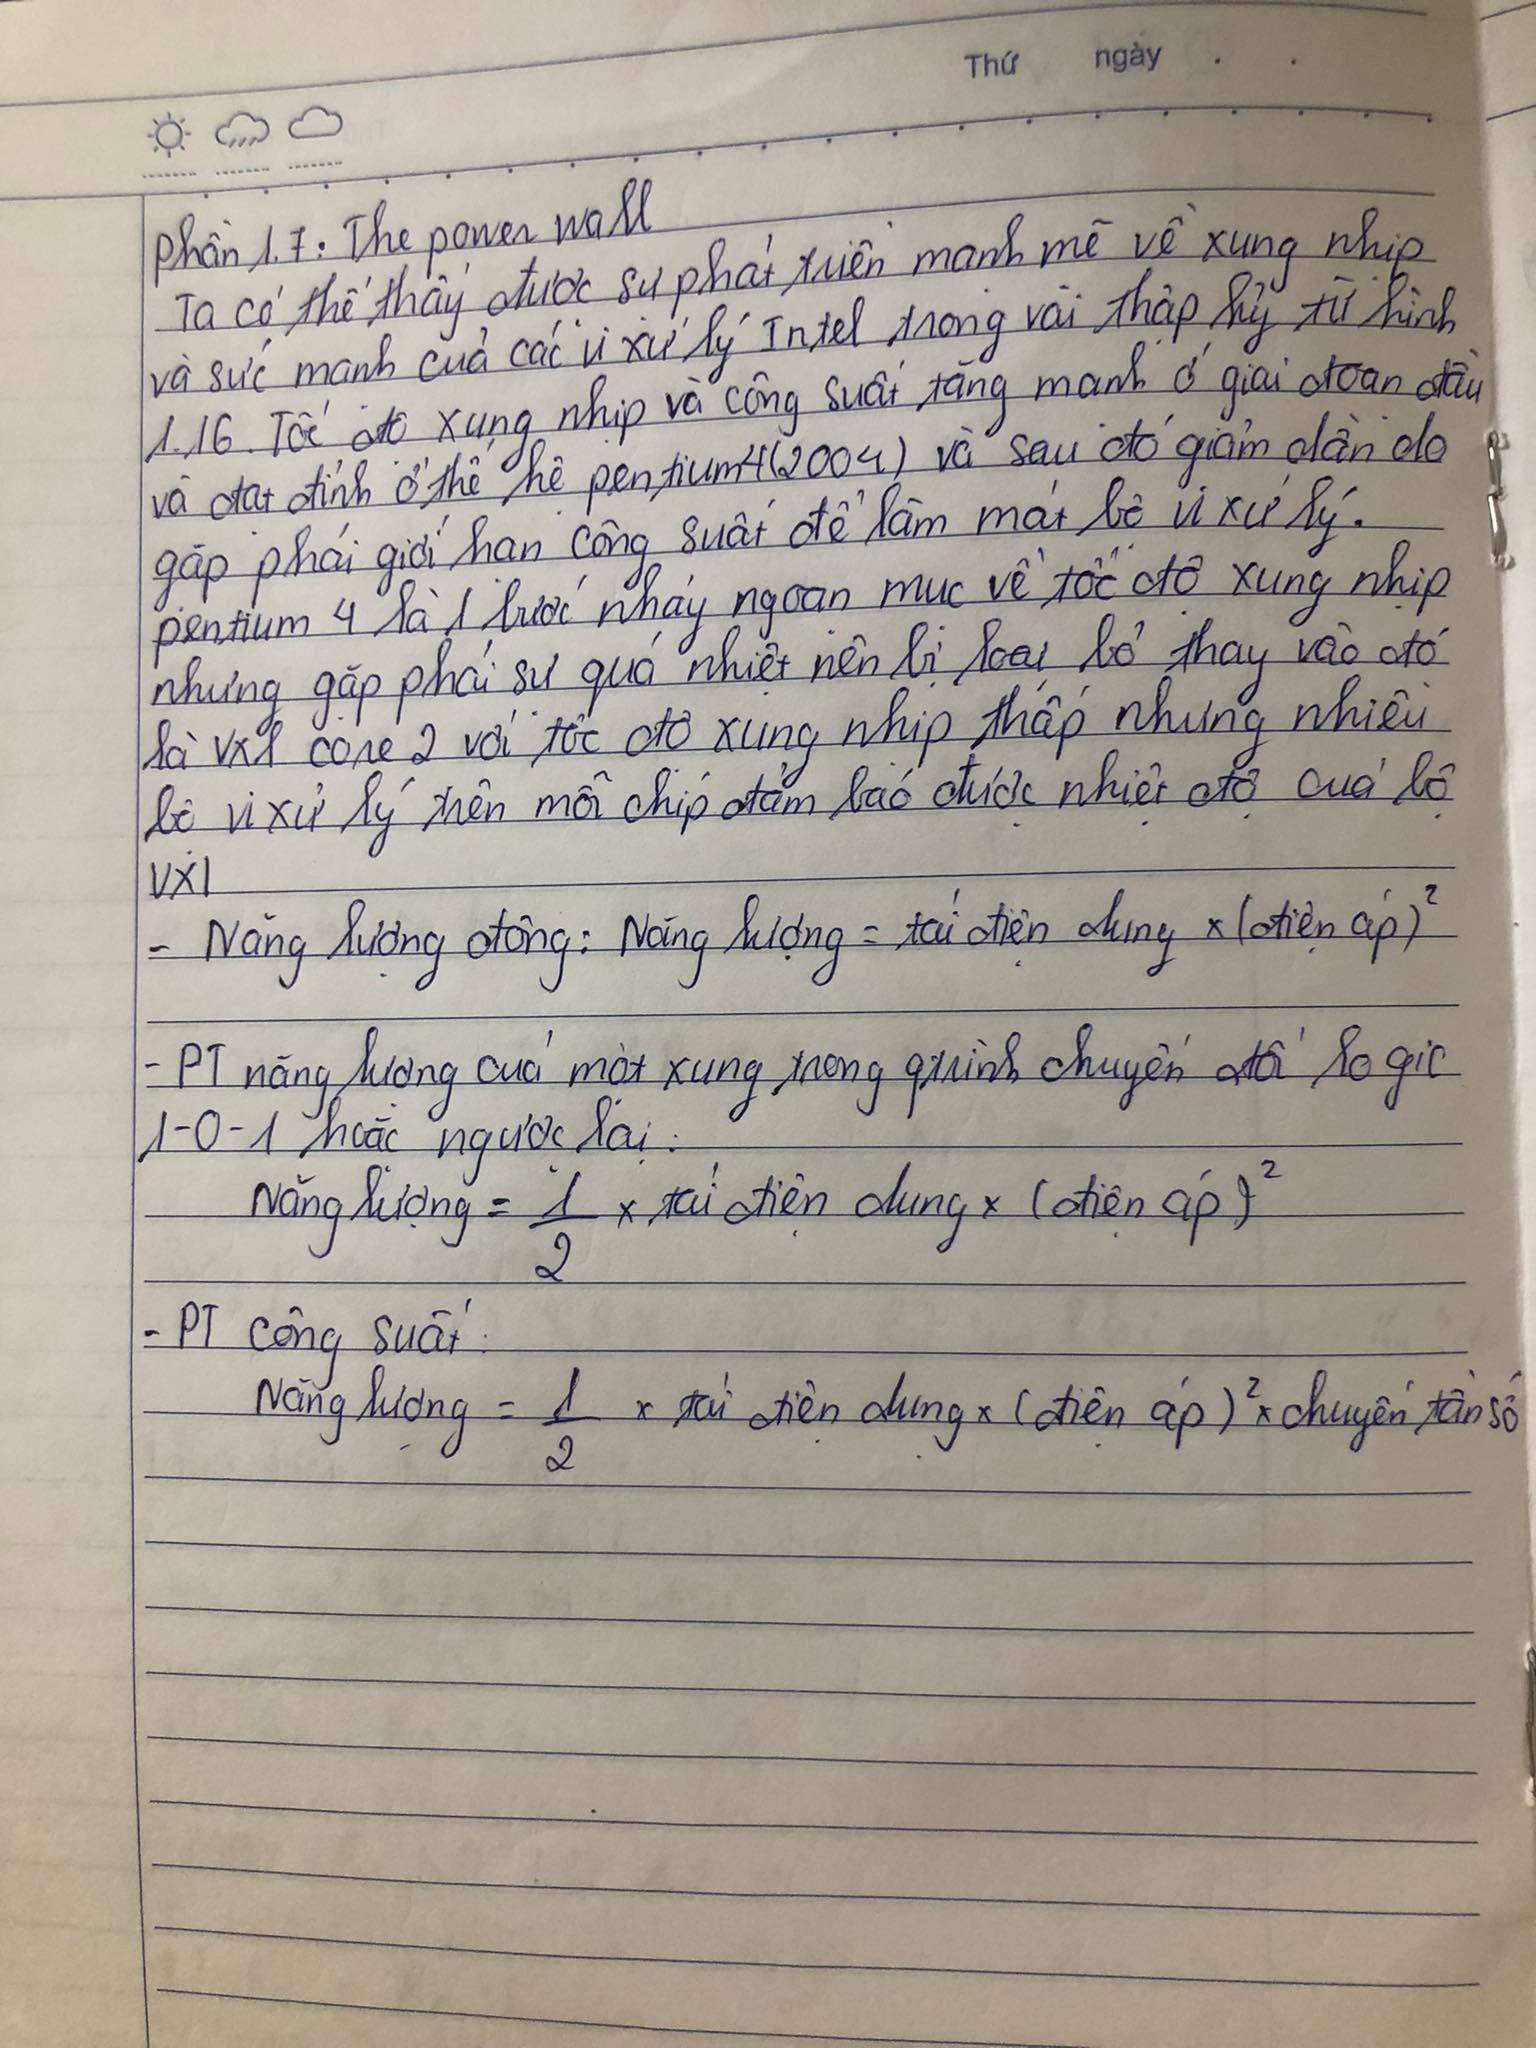 Thứ ngày . .
Phần 1.7: The power wall
Ta có thể thấy được sự phát triển mạnh mẽ về xung nhịp
và sức mạnh của các vi xử lý Intel trong vài thập kỷ từ hình
1.16. Tốc độ xung nhịp và công suất tăng mạnh ở giai đoạn đầu
và đạt đỉnh ở thế hệ pentium4(2004) và sau đó giảm dần do
gặp phải giới hạn công suất để làm mát bộ vi xử lý.
pentium 4 là 1 bước nhảy ngoạn mục về tốc độ xung nhịp
nhưng gặp phải sự quá nhiệt nên bị loại bỏ thay vào đó
là VXL core 2 với tốc độ xung nhịp thấp nhưng nhiều
bộ vi xử lý trên mỗi chip đảm bảo được nhiệt độ của bộ
VXL
- Năng lượng động: Năng lượng = tải điện dung x (điện áp)²
- PT năng lượng của một xung trong qtrình chuyển đổi logic
1-0-1 hoặc ngược lại:
Năng lượng = 1/2 x tải điện dung x (điện áp)²
- PT công suất:
Năng lượng = 1/2 x tải điện dung x (điện áp)² x chuyển tần số